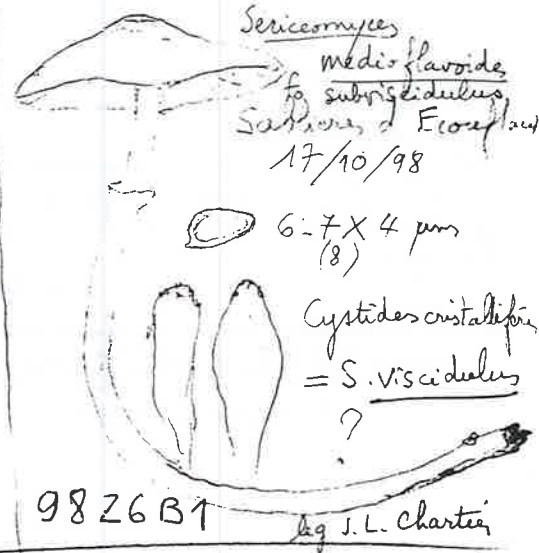 Sericeomyces
medioflavoides
fo subviscidulus
à
17/10/98
6-7 X 4 µm
(8)
Cystides cristallifères
= S. viscidulus
?
98Z6B1
leg J. L. Chartier